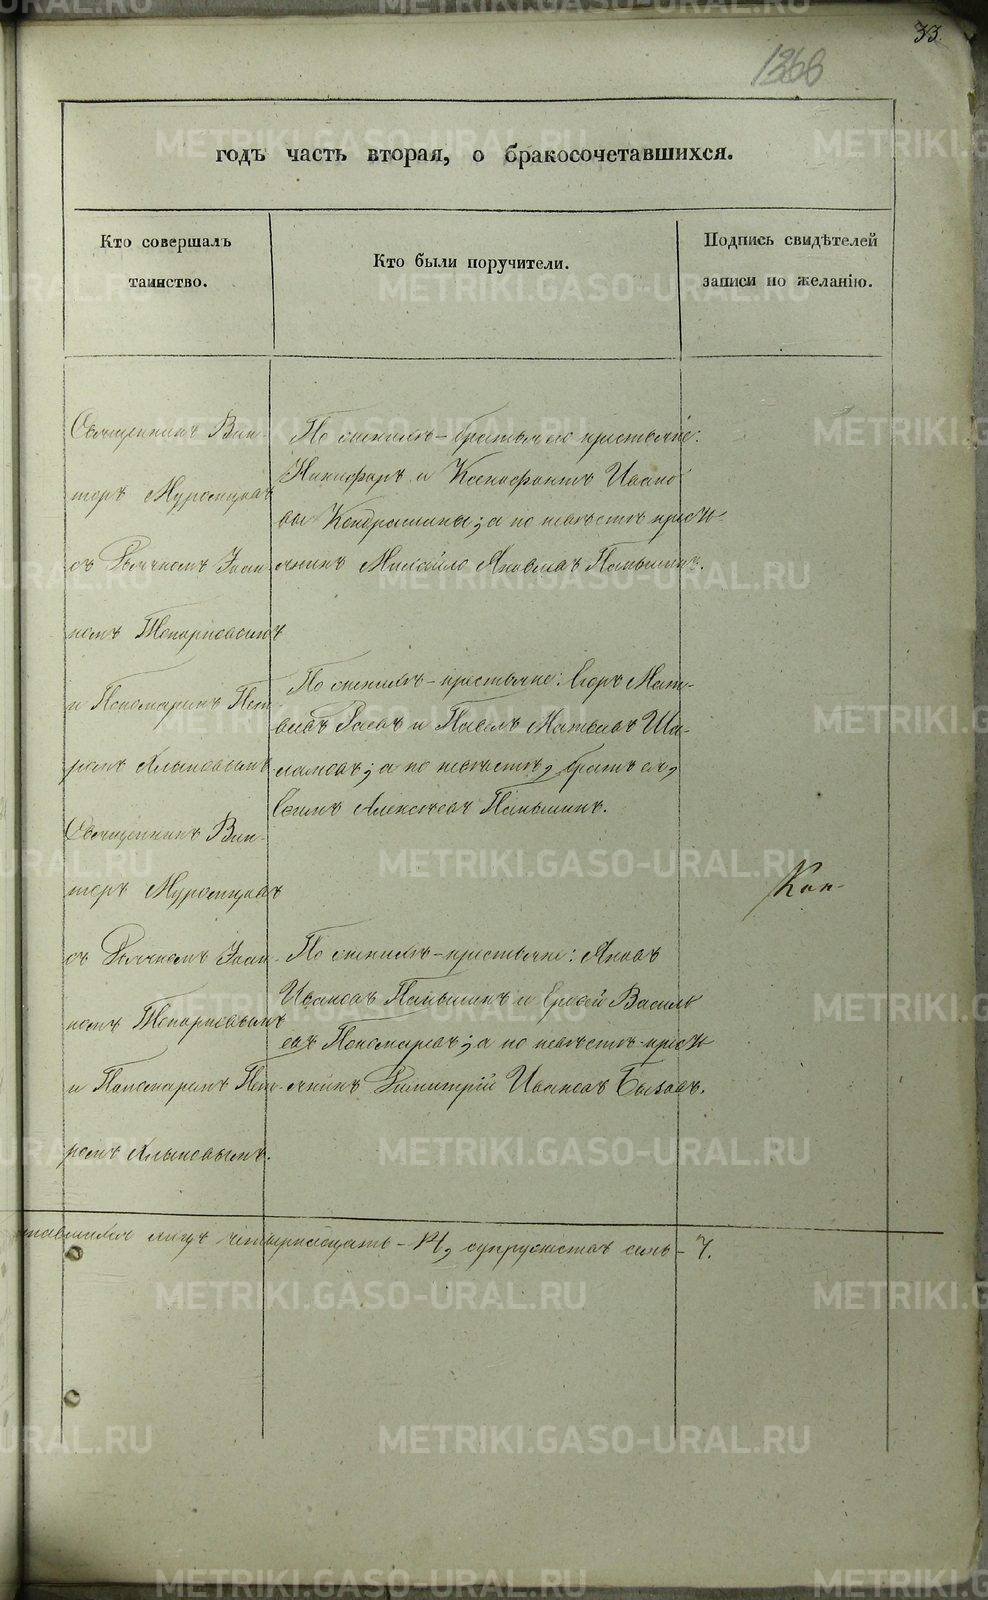 33.
1368
годъ часть вторая, о бракосочетавшихся.
Кто совершалъ
таинство.
Кто были поручители.
Подпись свидѣтелей
записи по желанію.
Священникъ Вик-
торъ Муромцевъ
съ Дьячкомъ Іоан-
номъ Топорковымъ
и Пономаремъ Пет-
ромъ Хлыновымъ
По женихѣ - братья его крестьяне:
Никифоръ и Ксенофонтъ Ивано-
вы Кондрашины; а по невѣстѣ крестья-
янинъ Михайло Яковлевъ Паньшинъ.
По женихѣ - крестьяне: Егоръ Мат-
вѣевъ и Павелъ Матвѣевъ
а по невѣстѣ, братъ ея,
Алексѣевъ Паньшинъ.
Священникъ Вик-
торъ Муромцевъ
съ Дьячкомъ Іоан-
номъ Топорковымъ
и Пономаремъ Пет-
ромъ Хлыновымъ.
По женихѣ - крестьяне: Яковъ
Ивановъ Паньшинъ и Василь-
евъ Пономаревъ; а по невѣстѣ крестья-
янинъ Димитрій Ивановъ Бызовъ.
лицъ четырнадцать - 14, супружествъ семь - 7.
METRIKI.GASO-URAL.RU